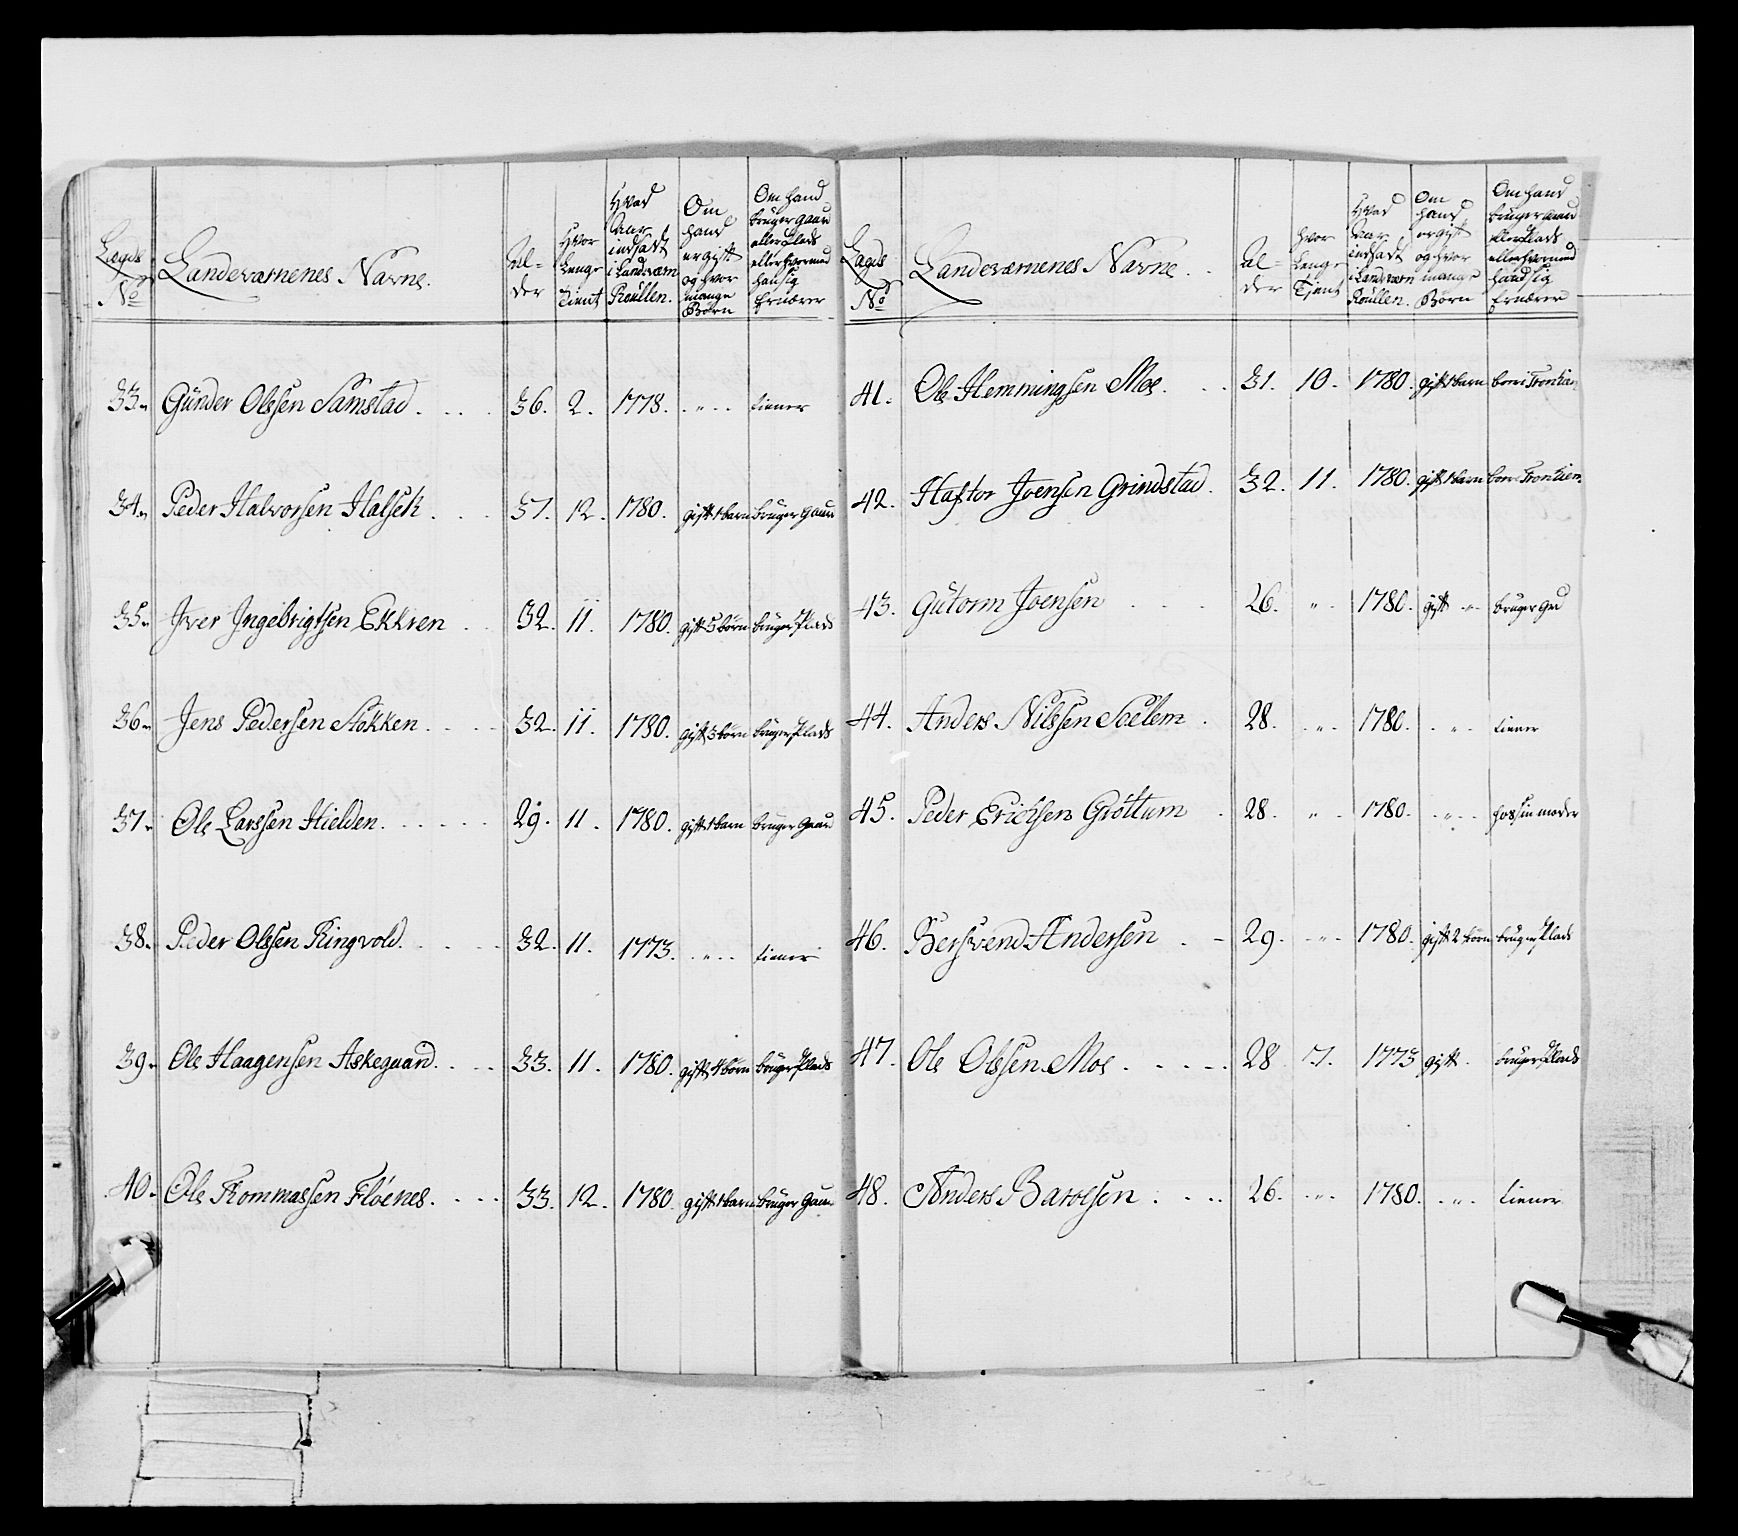 Lægds No | Landeværnenes Navne. | Al-der | Hvor Lenge Tient | Hvad Aar indsadt i Landværn Roullen. | Om hand er gift og hvor mange Børn | Om hand bruger gaard eller Plads eller hvormed hand sig Ernærer
33. Gunder Olssen Samstad . . . . 36. 2. 1778. . „ . . tiener
34. Peder Halvorsen Halseth . . . 37. 12. 1780. gift 1 barn bruger Gaard
35. Iver Ingebrigtsen Ekkren . . 32. 11. 1780. gift 5 børn bruger Plads
36. Jens Pedersen Stokken . . . . 32. 11. 1780. gift 3 børn bruger Plads
37. Ole Larssen Hielden . . . . . . 29. 11. 1780. gift 1 barn bruger Gaard
38. Peder Olssen Ringvold . . . . 32. 11. 1773. . „ . . tiener
39. Ole Haagensen Askegaard . . . . 33. 11. 1780. gift 4 børn bruger Plads
40. Ole Tommassen Fløenes. . . . . 33. 12. 1780. gift 1 barn bruger Gaard
Lægds No | Landeværnenes Navne . . | Al-der | Hvor Lenge Tjent | Hvad Aar indsadt i Landværn Roullen. | Om hand er gift og hvor mange Børn | Om hand bruger Gaard eller Plads eller hvormed hand sig Ernærer
41. Ole Hemmingsen Moe. . . 31. 10. 1780. gift 1 barn
42. Haftor Joensen Grindstad . 32. 11. 1780. gift 1 barn
43. Gutorm Joensen . . . . 26. „ . 1780. gift „ bruger
44. Anders Nilssen Soelem . 28. . „ . 1780. . „ . tiener
45. Peder Erichsen Grøttum . 28. „ . 1780. . „ . . hos sin moder
46. Bersvend Andersen . - 29. . „ . 1780. gift 2 børn bruger Plads
47. Ole Olssen Moe . . . . . 28 7. 1773 gift . bruger Plads
48. Anders Baroesen . . . . 26. . „ . 1780. . „ . tiener